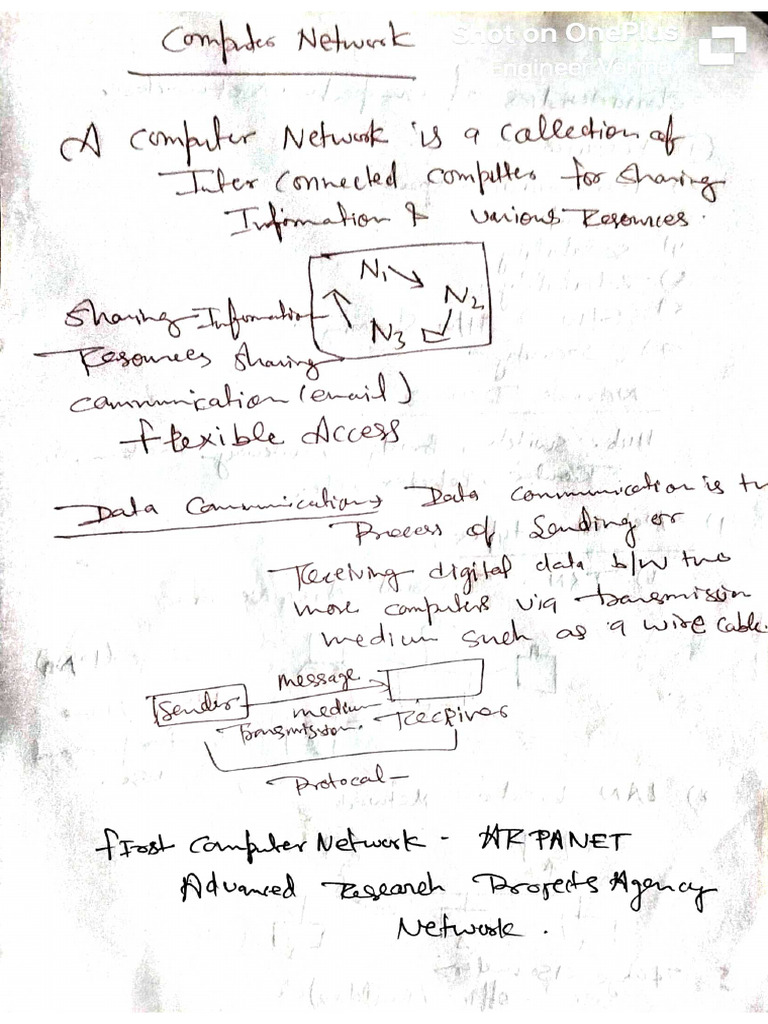 Computer Network
Shot on OnePlus
A computer Network is a collection of
Inter connected computers for sharing
Information & various Resources.
N1
N2
N3
Sharing Information
Resources sharing
communication (email)
flexible Access
Data Communication → Data communication is
Process of sending or
Receiving digital data b/w two
more computers via transmission
medium such as a wire cable.
message
Sender
medium
Transmission.
Receiver
Protocal
First Computer Network - ARPANET
Advanced Research Projects Agency
Network.